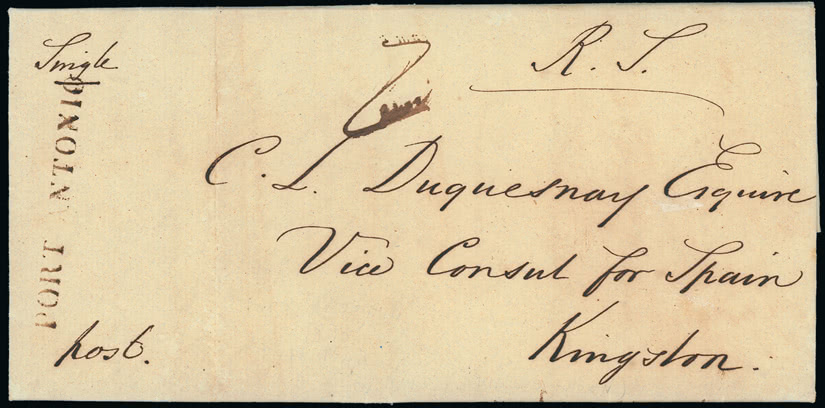 Single
R. S.
PORT ANTONIO
C. L. Duquesnay Esquire
Vice Consul for Spain
Kingston.
post.